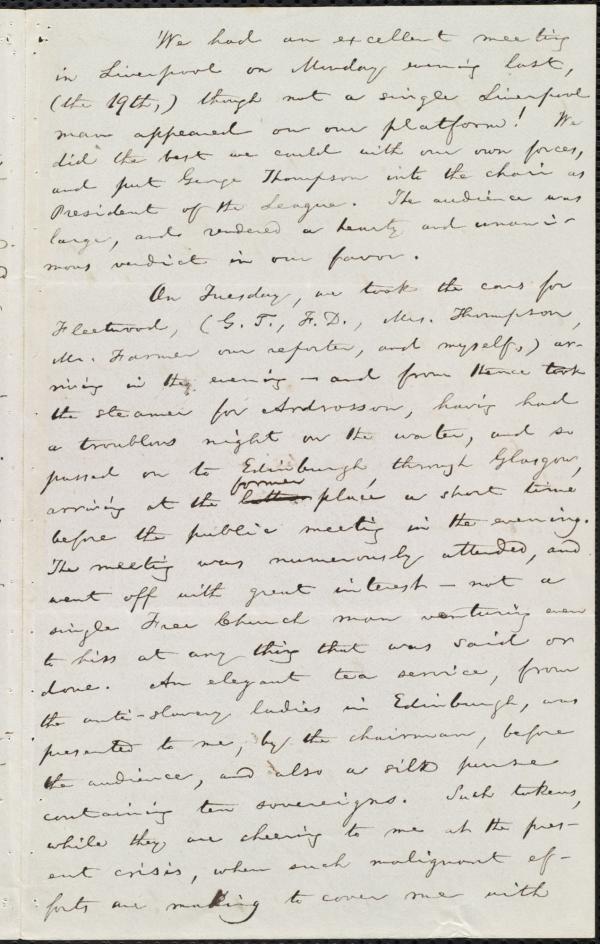 We had an excellent meeting
in Liverpool on Monday evening last,
(the 19th,) though not a single Liverpool
man appeared on our platform! We
did the best we could with our own forces,
and put George Thompson into the chair as
President of the League. The audience was
large, and rendered a hearty and unani-
mous verdict in our favor.
On Tuesday, we took the cars for
Fleetwood, (G. T., F. D., Mrs. Thompson,
Mr. Farmer our reporter, and myself,) ar-
riving in the evening — and from thence took
the steamer for Ardrossan, having had
a troublous night on the water, and so
passed on to Edinburgh, through Glasgow,
former
arriving at the latter place a short time
before the public meeting in the evening.
The meeting was numerously attended, and
went off with great interest — not a
single Free Church man venturing even
to hiss at any thing that was said or
done. An elegant tea service, from
the anti-slavery ladies in Edinburgh, was
presented to me, by the chairman, before
the audience, and also a silk purse
containing ten sovereigns. Such tokens,
while they are cheering to me at the pres-
ent crisis, when such malignant ef-
forts are making to cover me with